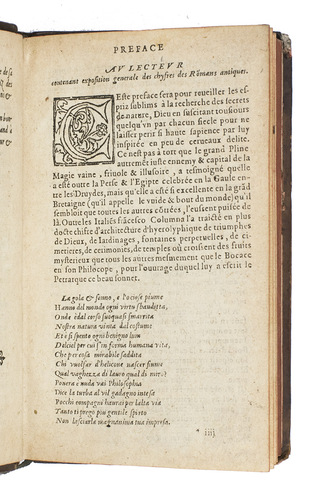 PREFACE
AV LECTEVR
contenant exposition generale des chyfres des Rōmans antiques.
CEste preface sera pour reueiller les es-
priz sublims à la recherche des secrets
de nature, Dieu en suscitant tousiours
quelqu'vn par chacun siecle pour ne
laisser perir si haute sapience par luy
inspirée en peu de cerueaux delite.
Ce n'est pas à tort que le grand Pline
autremēt iuste ennemy & capital de la
Magie vaine, friuole & illusoire, a tesmoigné quelle
a esté outre la Perse & l'Egipte celebrée en la Gaule en-
tre les Druydes, mais qu'elle a esté si excellente en la grād
Bretaigne (qu'il appelle le vuide & bout du monde) qu'il
semboloit que toutes les autres côtrées, l'eussent puisée de
là. Outre les Italiēs frācesco Columna l'a traicté en plus
docte chifre d'architecture d'hyerolyphique de triumphes
de Dieux, de Iardinages, fontaines perpetuelles, de ci-
metieres, de cerimonies, de temples où croissent des fruits
mysterieux que tous les autres mesmement que le Bocace
en son Philocope, pour l'ouurage duquel luy a escrit le
Petrarque ce beau sonnet.
La gola & sonno, e l'ociose piume
Hanno del mondo ogni virtu sbanditta,
Onde è dal corso suo quasi smarrita
Nostra natura vinta dal costume
Et è si spento ogni benigno lum
Del ciel per cui l'in forma humana vita,
Che per cosa mirabile s'addita
Chi vuol far d'helicone nascer fiume
Qual vaghezza di lauro qual di mirto
Pouera e nuda vai Philosophia
Dice la turba al vil gadagno intesa
Pocchi compagni haurai per l'alta via
Tanto ti prego piu gentile spirto
Non lasciar la magnanima tua impresa.
iiij